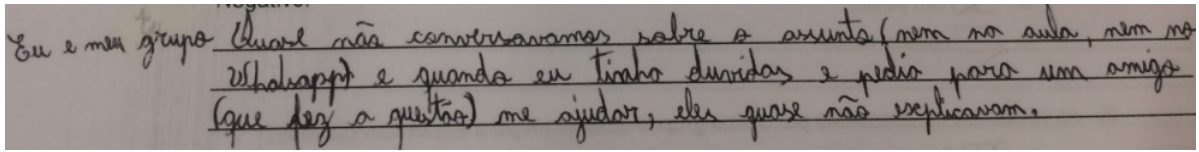 Eu e meu grupo Quase não conversavamos sobre o assunto (nem na aula, nem no
Whatsapp) e quando eu tinha duvidas e pedia para um amigo
(que fez a questão) me ajudar, eles quase não explicavam.